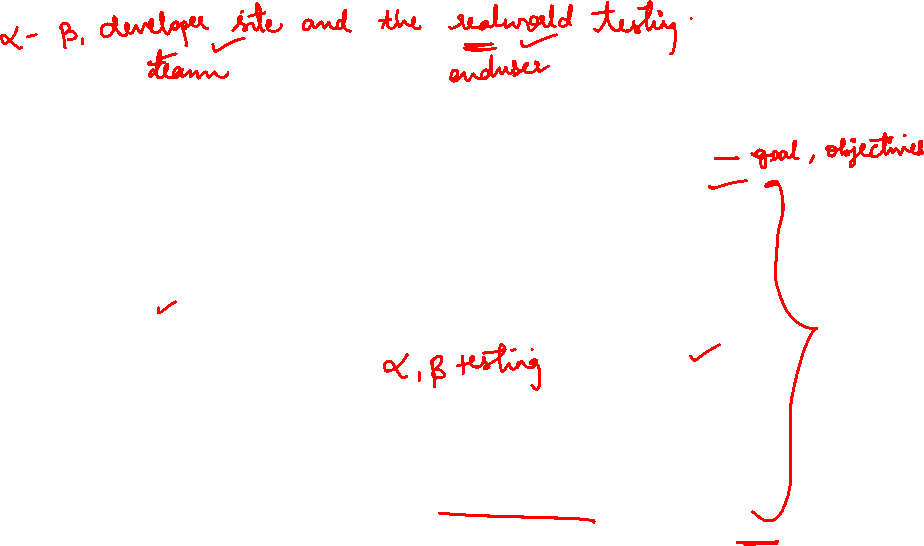 α- β, developer site and the realworld testing.
team enduser
- goal, objectives
α, β testing